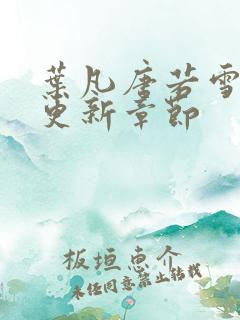 葉凡唐若雪
更新章節
板垣恵介
未经同意禁止转载